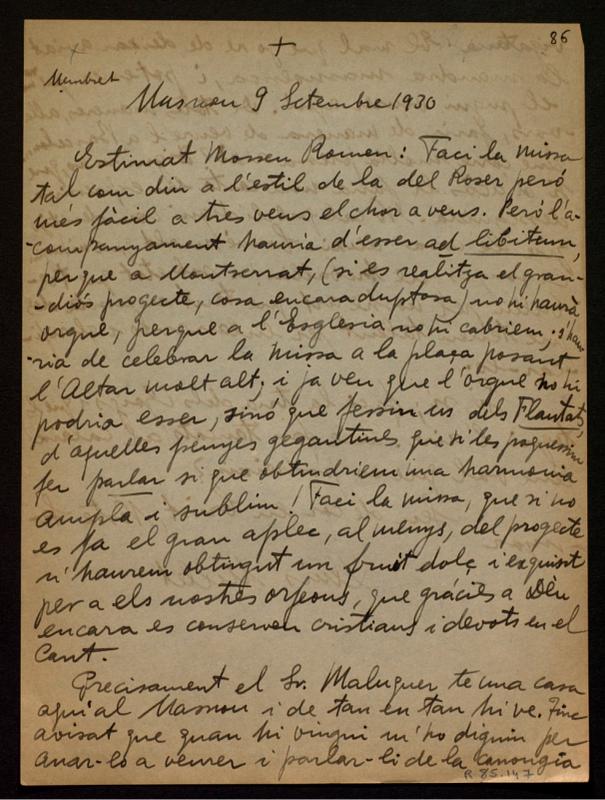 86
+
Membret
Masnou 9 Setembre 1930
Estimat Mossen Romeu: Faci la missa
tal com diu a l'estil de la del Roser peró
més fàcil a tres veus el chor a veus. Peró l'a-
-companyament hauria d'esser ad libitum,
perque a Montserrat, (si es realitza el gran-
-diós progecte, cosa encara duptosa) no hi haurà
orgue, perque a l'Esglesia no hi cabriem; s'hau-
ria de celebrar la missa a la plaça posant
l'Altar molt alt; i ja veu que l'orgue no hi
podria esser, sinó que fessin us dels Flautats,
d'aquelles penyes gegantines que si les poguessim
fer parlar si que obtindriem una harmonia
ampla i sublim! Faci la missa, que si no
es fa el gran aplec, al menys, del progecte
n'haurem obtingut un fruit dolç i exquisit
per a els nostres orfeons, que gràcies a Déu
encara es conserven cristians i devots en el
Cant.
Precisament el Sr. Maluquer te una casa
aquí al Masnou i de tan en tan hi ve. Tinc
avisat que quan hi vingui m'ho diguin per
anar-lo a veurer i parlar-li de la canongia
R. 85.147